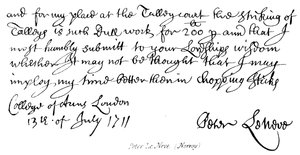 and for my place at the Talley court the striking of
Talleys is such dull work for 200 p ann that I
most humbly submitt to your Lordships wisdom
whether It may not be thought that I may
imploy my time better then in chopping sticks
College of Arms London
13th. of July 1711
Peter Leneve
Peter Le Neve (Norroy)